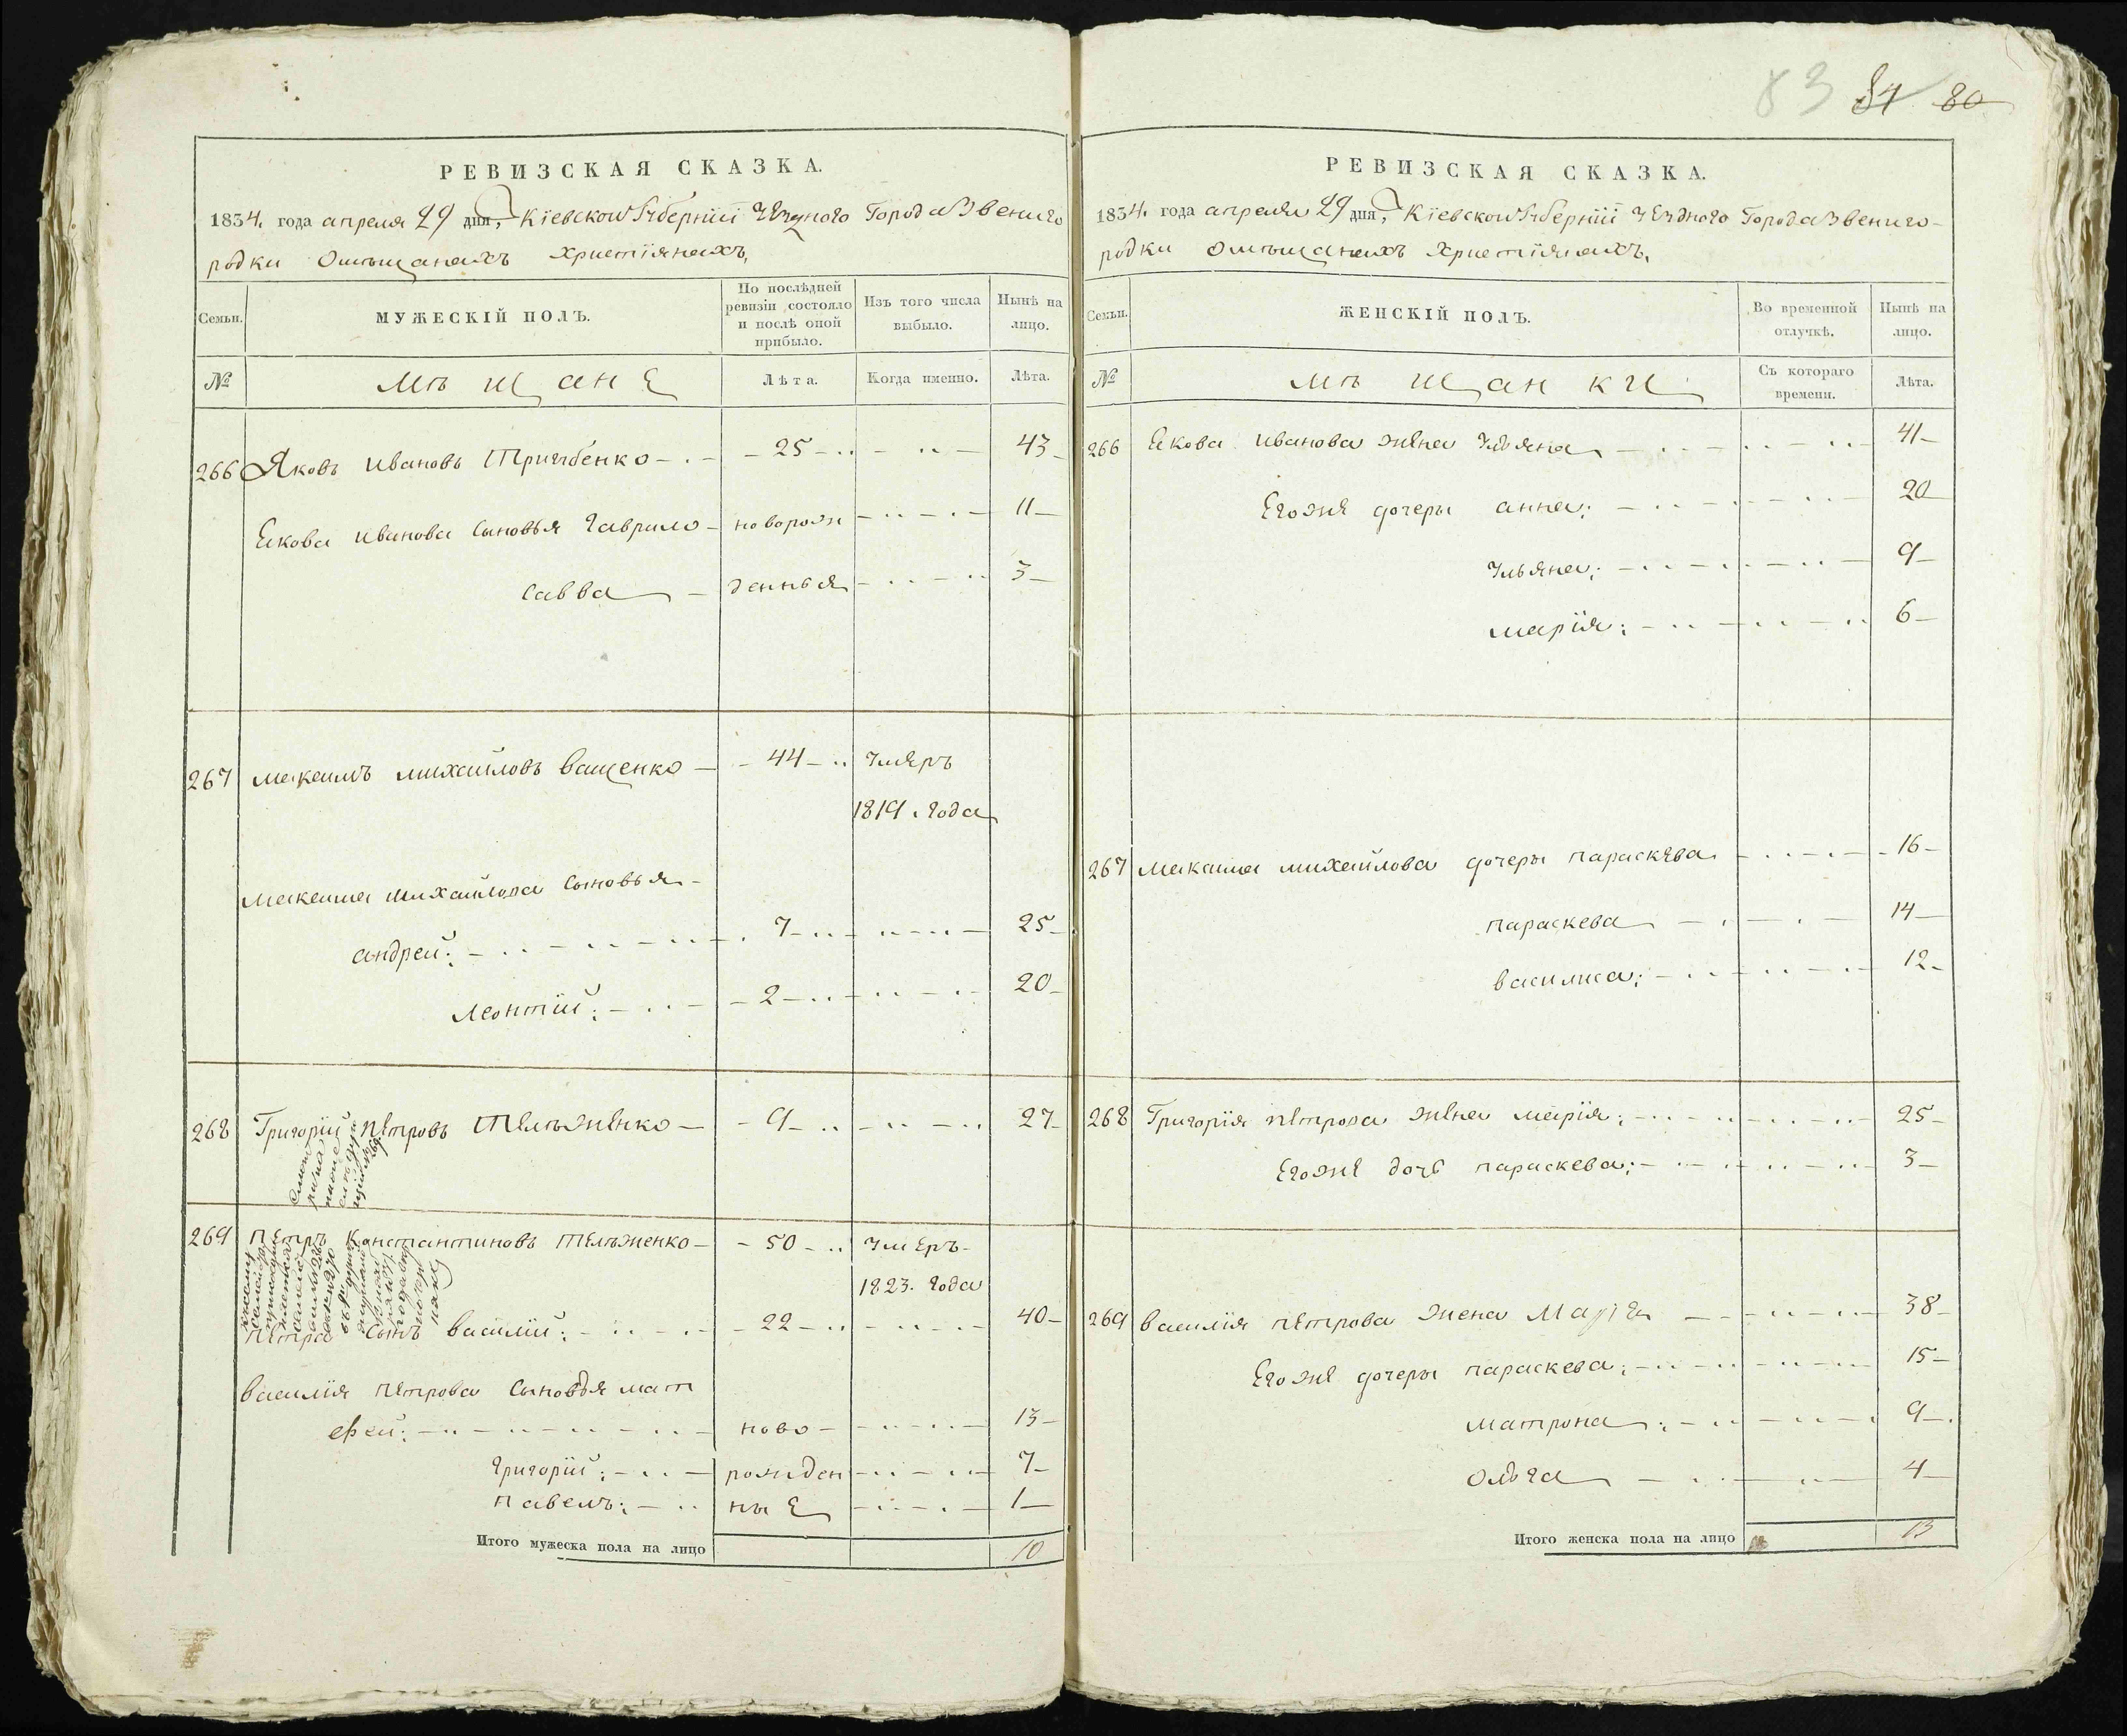 83 84 80
РЕВИЗСКАЯ СКАЗКА.
1834. года апреля 29 дня, Кіевской Губерніи Уезного Города Звениго
родки Омѣщанахъ Христіянахъ,
Семьи.
МУЖЕСКІЙ ПОЛЪ.
По послѣдней ревизіи состояло и послѣ оной прибыло.
Изъ того числа выбыло.
Нынѣ на лицо.
№
мѣщане
Лѣта.
Когда именно.
Лѣта.
266 Яковъ Ивановъ 25 43
Екова Иванова Сыновья Гаврило новорож 11
Савва денныя 3
267 Максимъ Михайловъ Ващенко 44 умеръ
1819. года
Максима Михайлова Сыновья
андрей: 7 25
леонтій: 2 20
268 Григорій Петровъ Тележенко 9 27
269 Петръ Константиновъ Тележенко 50 умеръ
1823. года
Петра Сынъ Василій: 22 40
Василія Петрова Сыновья мат
фей: ново 13
Григорій: рожден 7
Павелъ: ные 1
Итого мужеска пола на лицо 10
РЕВИЗСКАЯ СКАЗКА.
1834. года апреля 29 дня, Кіевской Губерніи Уездного Города Звениго-
родки Омѣщанахъ Христіянахъ,
Семьи.
ЖЕНСКІЙ ПОЛЪ.
Во временной отлучкѣ.
Нынѣ на лицо.
№
мѣщанки
Съ котораго времени.
Лѣта.
266 Екова Иванова жена Ульяна 41
Егоже дочеры анна: 20
Ульяна: 9
марія: 6
267 Максима Михайлова дочеры параскева 16
параскева 14
василиса: 12
268 Григорія Петрова жена марія: 25
Егоже дочь параскева: 3
269 Василія Петрова жена Марія 38
Егоже дочеры параскева: 15
матрона: 9
Ольга 4
Итого женска пола на лицо 13